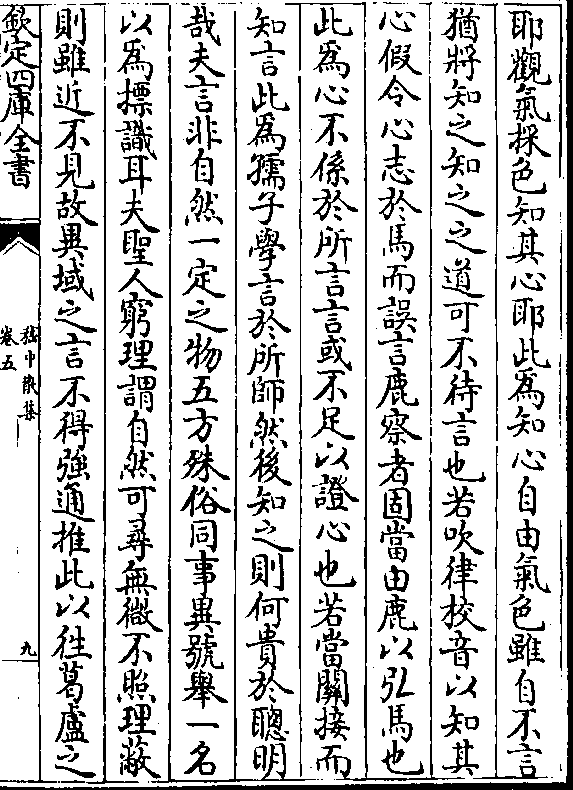 耶觀氣採色知其心耶此爲知心自由氣色雖自不言
猶將知之知之之道可不待言也若吹律校音以知其
心假令心志於馬而誤言鹿察者固當由鹿以弘馬也
此爲心不係於所言言或不足以證心也若當關接而
知言此爲孺子學言於所師然後知之則何貴於聰明
哉夫言非自然一定之物五方殊俗同事異號舉一名
以爲摽識耳夫聖人窮理謂自然可尋無微不照理蔽
則雖近不見故異域之言不得強通推此以徃葛盧之
欽定四庫全書
嵇中散集
卷五
九